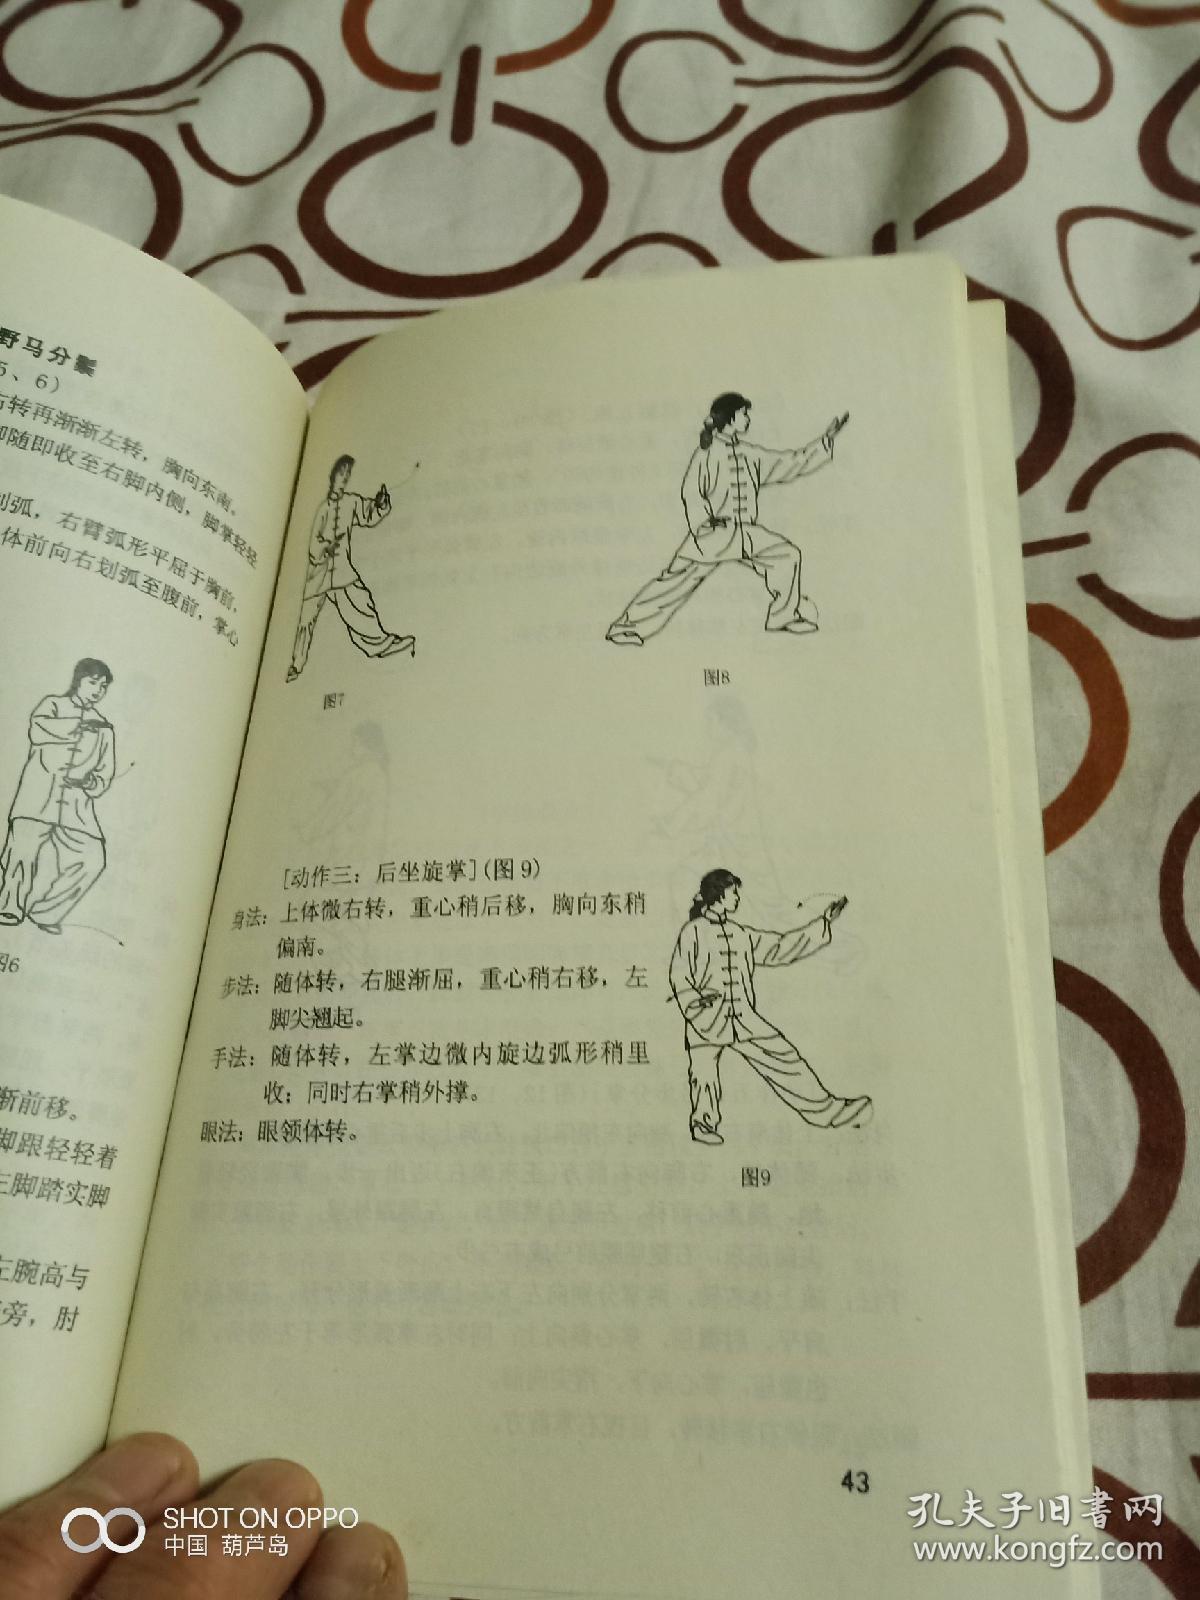 野马分鬃
5、6）
右转再渐渐左转，胸向东南。
脚随即收至右脚内侧，脚掌轻轻
划弧，右臂弧形平屈于胸前，
体前向右划弧至腹前，掌心
图6
渐前移。
脚跟轻轻着
左脚踏实脚
左腕高与
旁，肘
图7
图8
[动作三：后坐旋掌](图9)
身法：上体微右转，重心稍后移，胸向东稍
偏南。
步法：随体转，右腿渐屈，重心稍右移，左
脚尖翘起。
手法：随体转，左掌边微内旋边弧形稍里
收；同时右掌稍外撑。
眼法：眼领体转。
图9
43
SHOT ON OPPO
中国 葫芦岛
孔夫子旧书网
www.kongfz.com